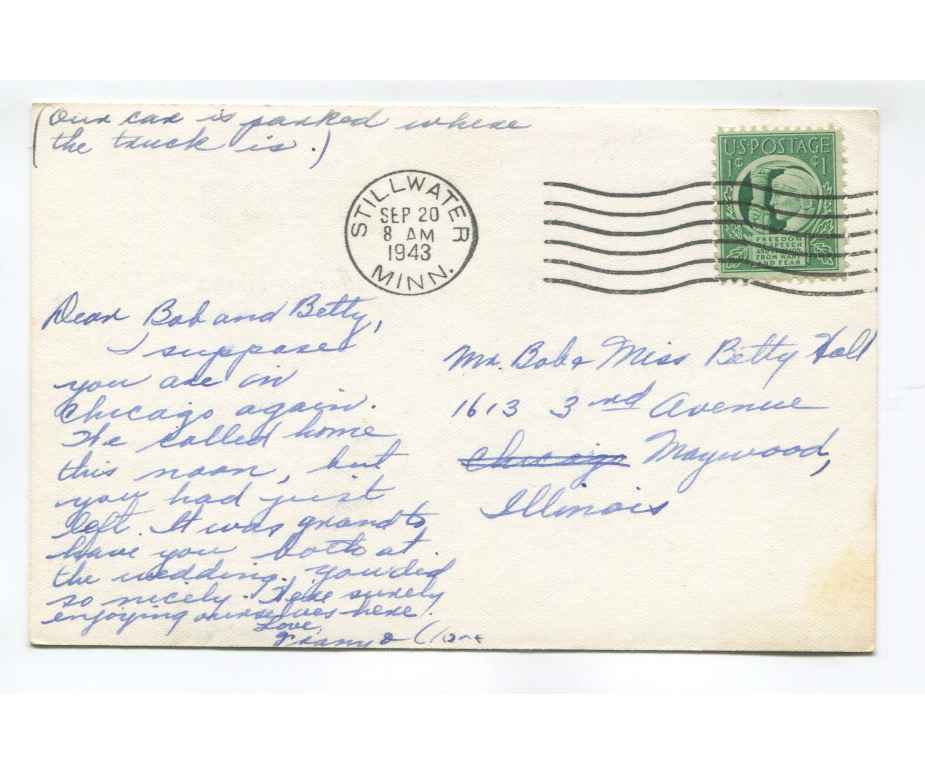 (Our car is parked where
(the truck is.)
STILLWATER
MINN.
SEP 20
8 AM
1943
U.S. POSTAGE
1¢ 1¢
FREEDOM
OF SPEECH
AND RELIGION
FROM WANT
AND FEAR
Dear Bob and Betty,
I suppose
you are in
Chicago again.
We called home
this noon, but
you had just
left. It was grand to
have you both at
the wedding. You did
so nicely. We're surely
enjoying ourselves here.
Love,
&
Mr. Bob & Miss Betty Hall
1613 3rd Avenue
Chicago Maywood,
Illinois